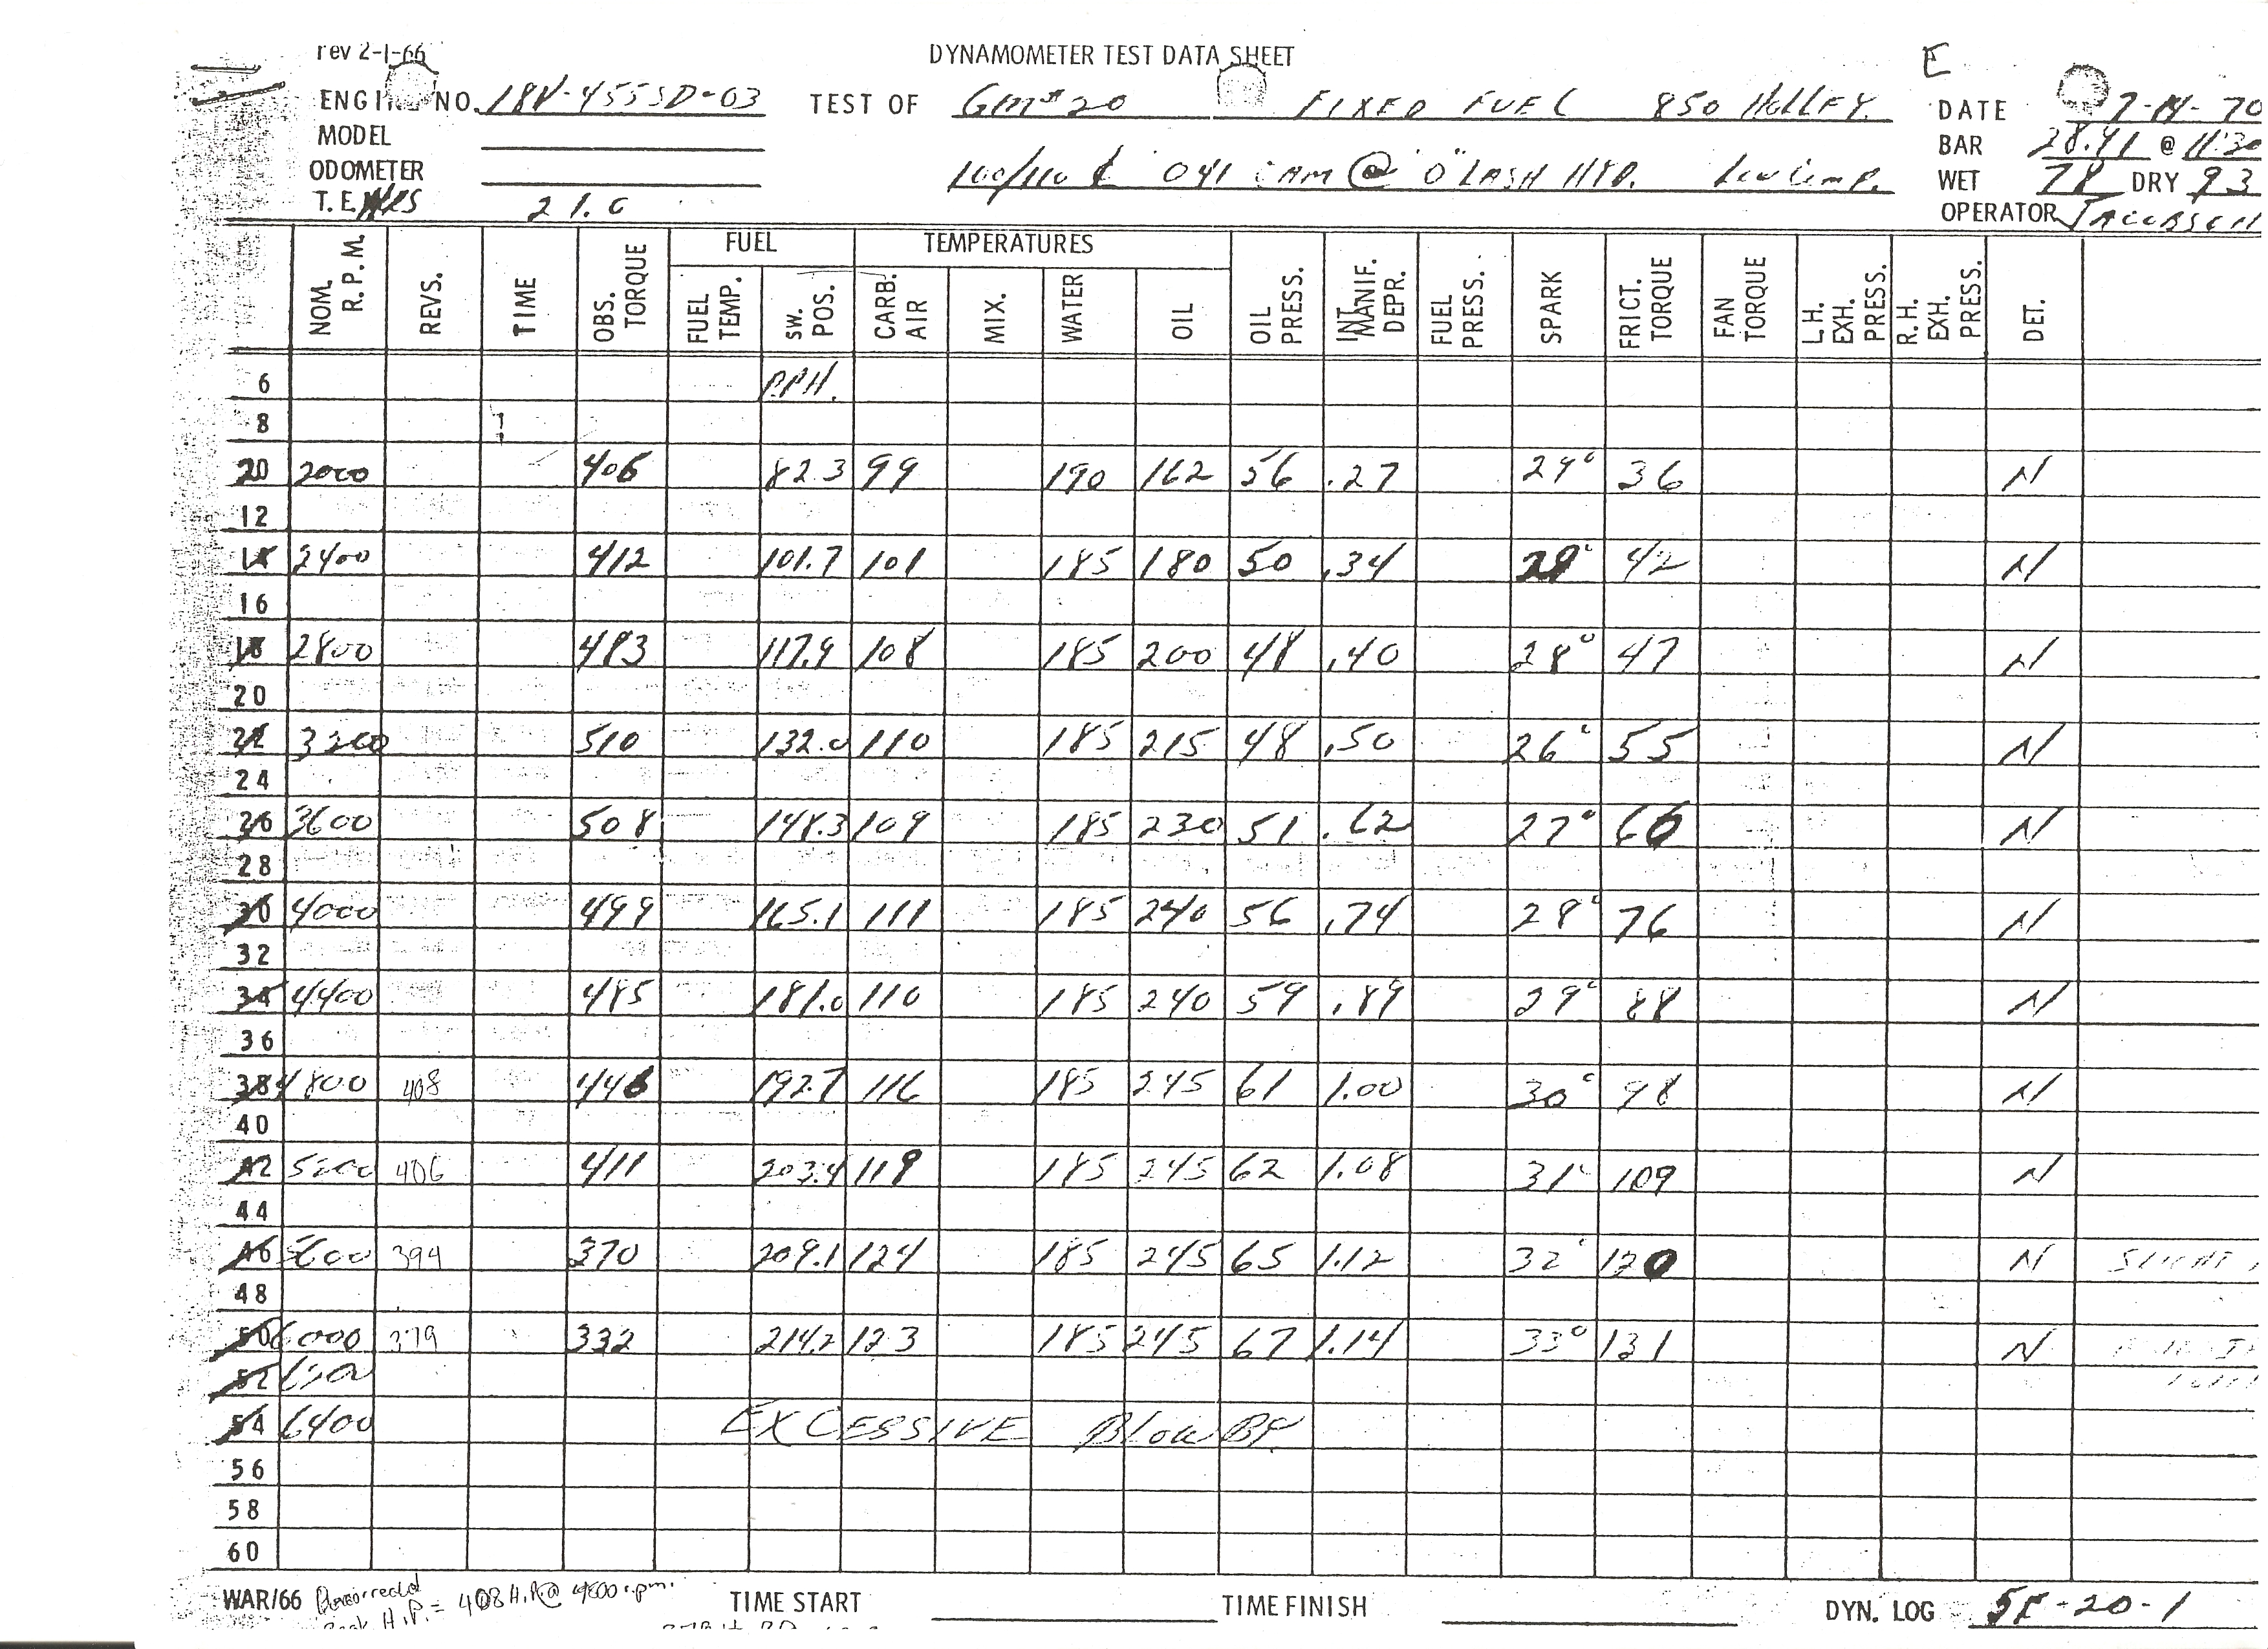 rev 2-1-66
DYNAMOMETER TEST DATA SHEET
E
ENGINE NO. 18V-455SD-03 TEST OF GM#20 FIXED FUEL 850 HOLLEY. DATE 7-14-70
MODEL BAR 28.41 @ 11:30
ODOMETER 100/110 ¢ 041 CAM @ "0" LASH HYD. WET 78 DRY 93
T.E. HRS 21.0 OPERATOR JACOBSEN
FUEL TEMPERATURES
NOM. R.P.M. REVS. TIME OBS. TORQUE FUEL TEMP. SW. POS. CARB. AIR MIX. WATER OIL OIL PRESS. INT. MANIF. DEPR. FUEL PRESS. SPARK FRICT. TORQUE FAN TORQUE L.H. EXH. PRESS. R.H. EXH. PRESS. DET.
6 P.P.H.
8
20 2000 406 82.3 99 190 162 56 .27 29° 36 N
12
14 2400 412 101.7 101 185 180 50 .34 29° 42 N
16
18 2800 483 117.9 108 185 200 48 .40 28° 47 N
20
22 3200 510 132.0 110 185 215 48 .50 26° 55 N
24
26 3600 508 148.3 109 185 230 51 .62 27° 66 N
28
30 4000 499 165.1 111 185 240 56 .74 28° 76 N
32
34 4400 485 181.0 110 185 240 59 .89 29° 88 N
36
38 4800 408 446 192.7 116 185 245 61 1.00 30° 98 N
40
42 5200 406 411 203.4 119 185 245 62 1.08 31° 109 N
44
46 5600 394 370 209.1 124 185 245 65 1.12 32° 120 N
48
50 6000 379 332 214.2 123 185 245 67 1.14 33° 131 N
52
54 6400 EXCESSIVE BLOW BY.
56
58
60
WAR/66 TIME START TIME FINISH DYN. LOG 5E-20-1
Peak H.P. = 408 H.P. @ 4800 r.p.m.